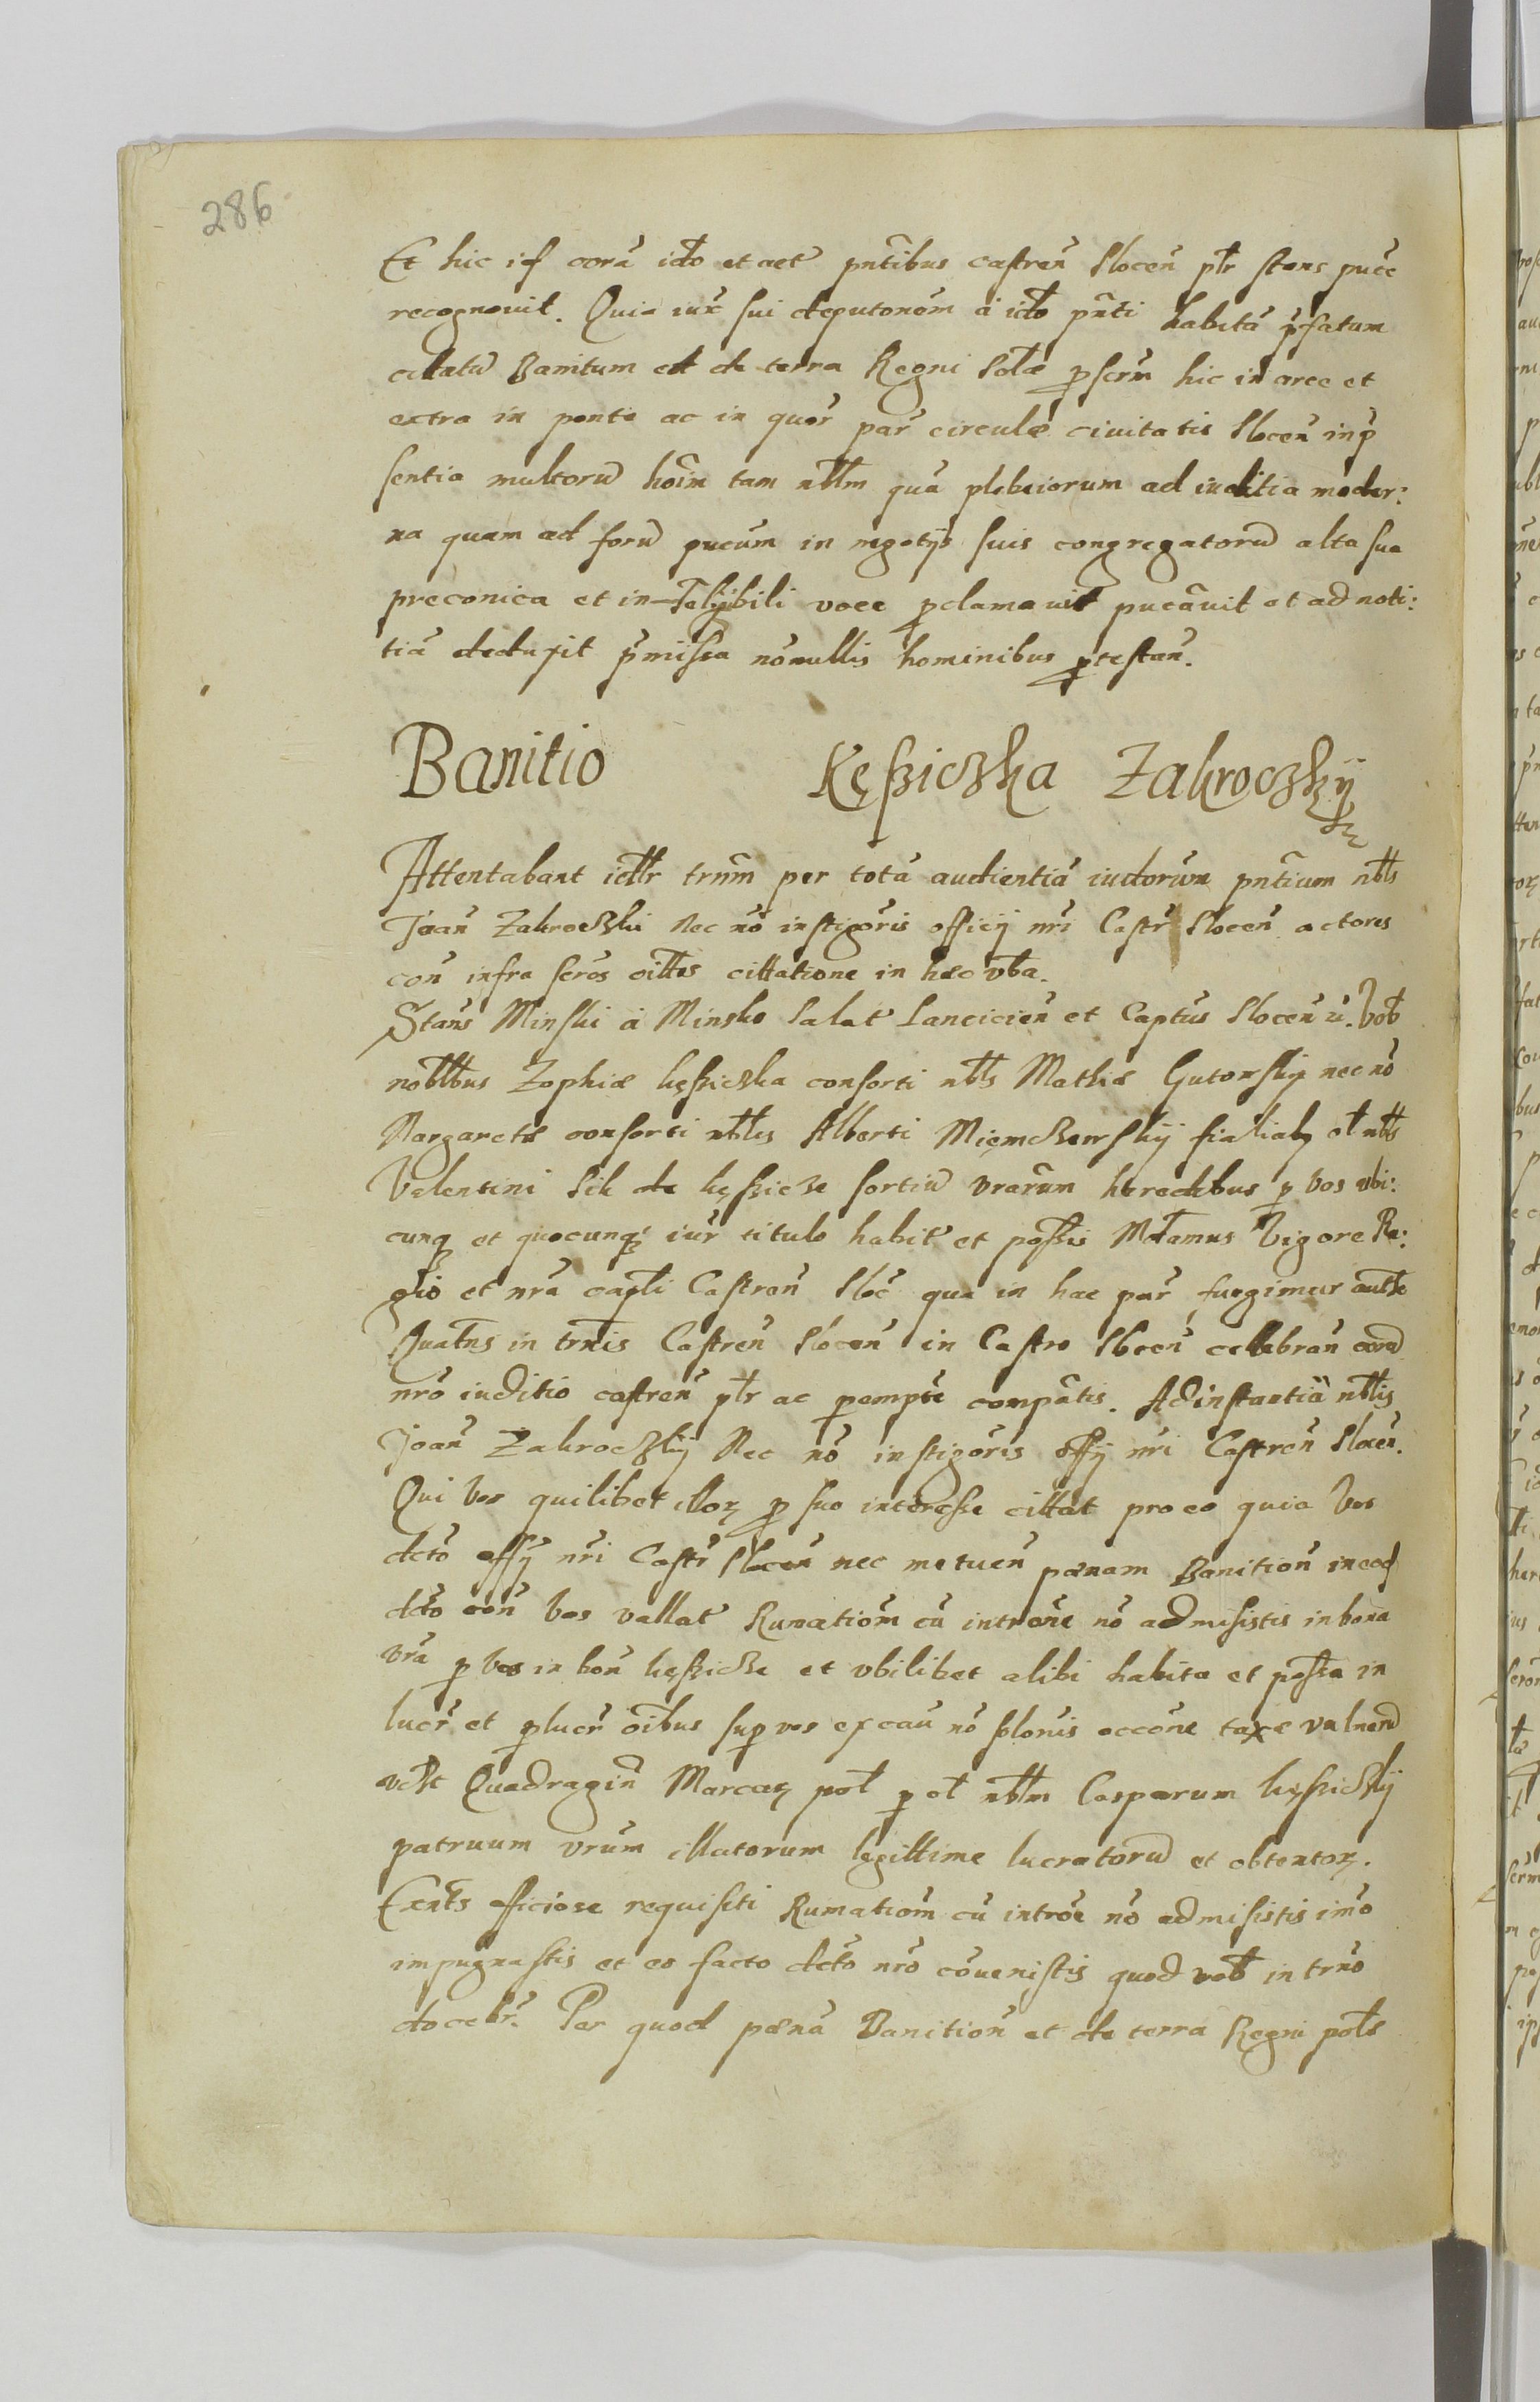 286
Et hic iɋ corā ido et act pntibus castren Plocen ptr stans puce
recognovit. Quia iux sui deputonem a ido pnti habitā pfatum
citatu Banitum et de terra Regni Pole pscrm hic in arce et
extra in ponte ac in quor par circule civitatis Plocen in p
sentia multoru hoim tam nblm quā plebeiorum ad iuditia moder:
na quam ad foru pucum in negotijs suis congregatoru alta sua
preconica et in-Telijbili voce pclamavit pucavit et ad noti:
tiā deduxit pmissa nonullis hominibus ptestan.
Banitio Kęssiczka Zakroczkij
Attentabant idtr trnm per totā audientiā iudiorum pntium nbls
Joan Zakroczki Nec nō instigoris officij nri Castr Plocen actores
con infra scros cittes cittatione in hæc vba.
Stans Minski á Minsko Palat Lancicien et Captus Plocen zc. Vob
noblbus Zophiæ kęssiczka consorti nbls Mathiæ Gutowskij nec nō
Margaretæ consorti nbles Alberti Miemczewskij filiab ol nbls
Valentini Pik de kęssicze sortiu vrarum heredibus p vos vbi:
cunq et quocunq iur titulo habit et possis Mdamus Vigore Re:
glio et nra captli Castren Ploc qua in hac par fungimur autte
Quatns in trnis Castren Plocen in Castro Plocen celebran corā
nro iuditio castren ptr ac pempte compatis. Ad instantiā nblis
Joan Zakroczkij Nec nō instigoris offij nri Castren Plocen.
Qui Vos quilibet illoɀ p suo interesse cittat pro eo quia Vos
dcto offij nri Castr Plocen nec metuen pœnam Banition in eod
dcto con Vos vallat Rumatiom cū introne nō admisistis in bona
vra p Vos in bon kęssicze et vbilibet alibi habita et possa in
lucr et plucr oibus sup vos ex cau nō solonis occone taxe vulneru
vdlt Quadragin Marcaɀ pol p ol nblm Casparum kęssickij
patruum vrum illatorum legittime lucratoru et obtentoɀ.
Exnts officiose requisiti Rumatiom cū introe nō admisistis imo
impugnastis et eo facto dcto nro cōvenistis quod vob in trno
docebr. Per quod pœnā Banition et de terra Regni pols